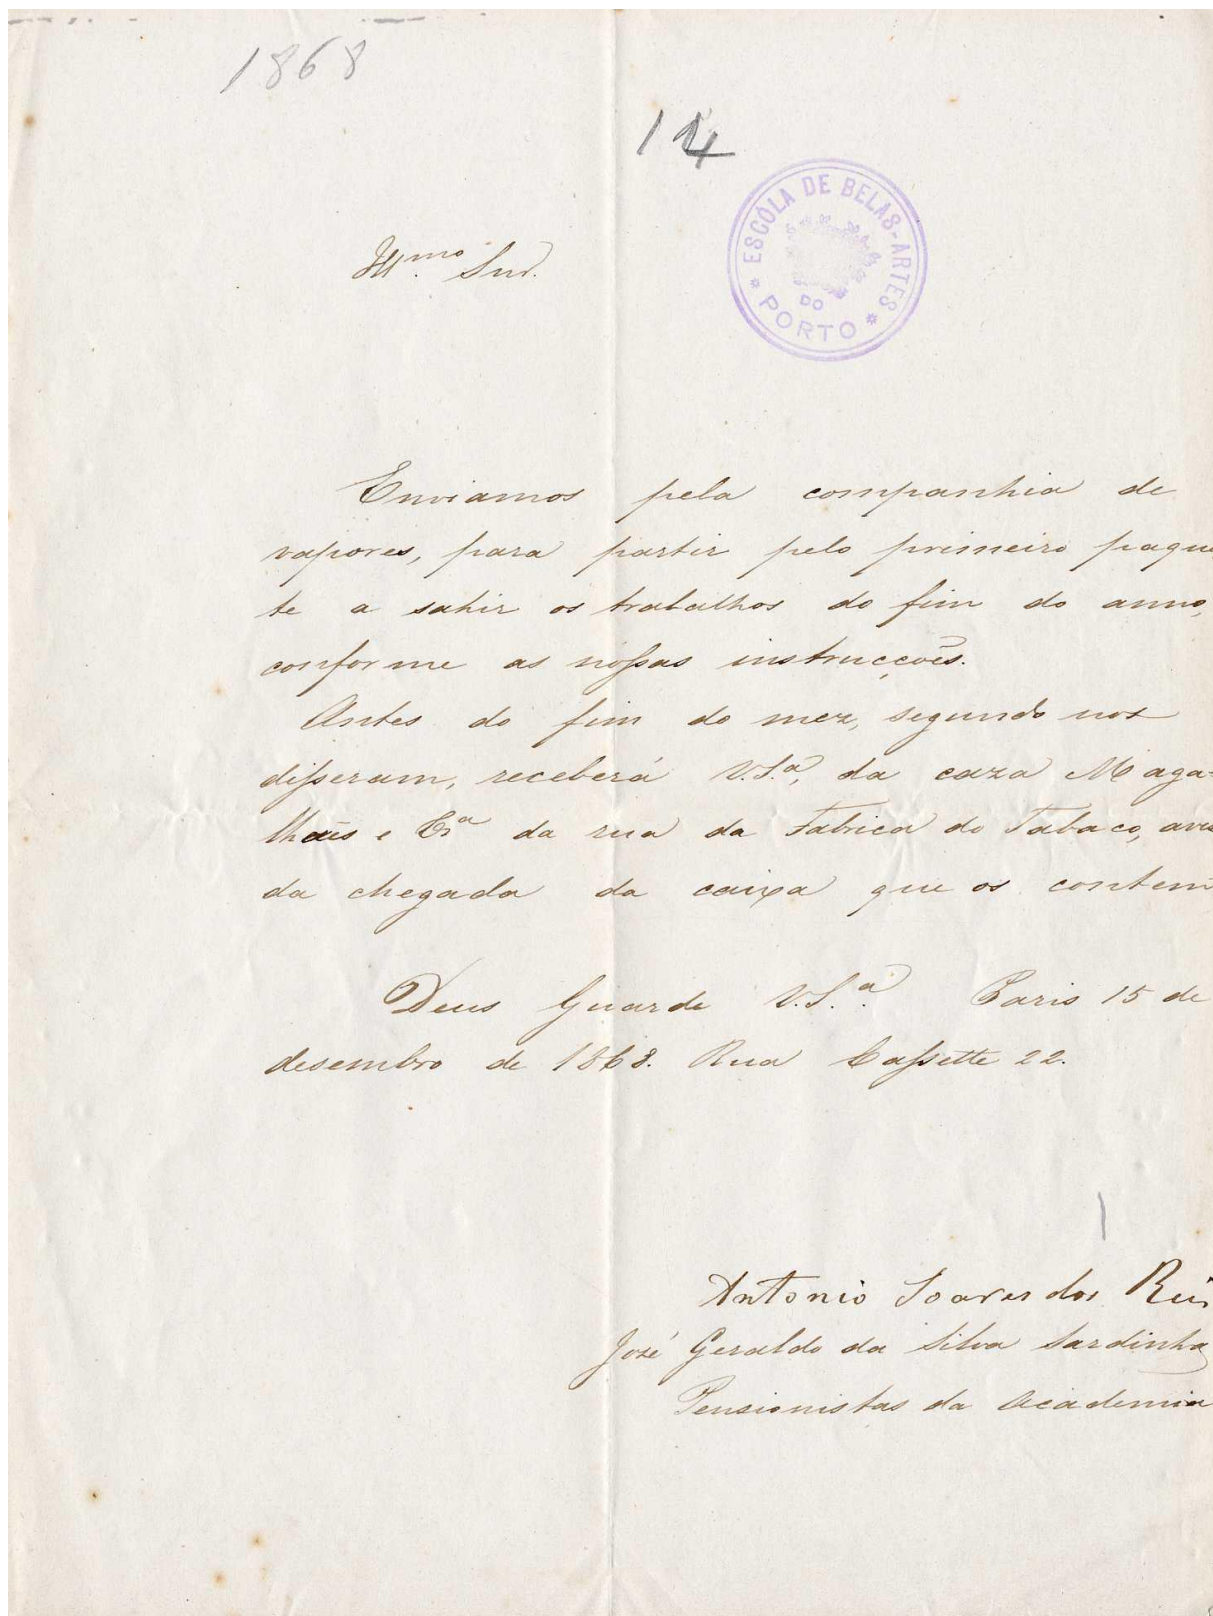 1868
14
ESCÓLA DE BELAS-ARTES
DO
PORTO
Ill.mo Snr.
Enviamos pela companhia de
vapores, para partir pelo primeiro paque
te a sahir os trabalhos do fim do anno,
conforme as nossas instrucções.
Antes do fim do mez, segundo nos
disseram, receberá V.S.ª, da caza Maga-
lhaẽs e Cª da rua da Fabrica do Tabaco, avis
da chegada da caixa que os contem
Deus Guarde V.S.ª Paris 15 de
desembro de 1868. Rua Cassette 22.
Antonio Soares dos Reis
José Geraldo da Silva Sardinha
Pensionistas da Academia